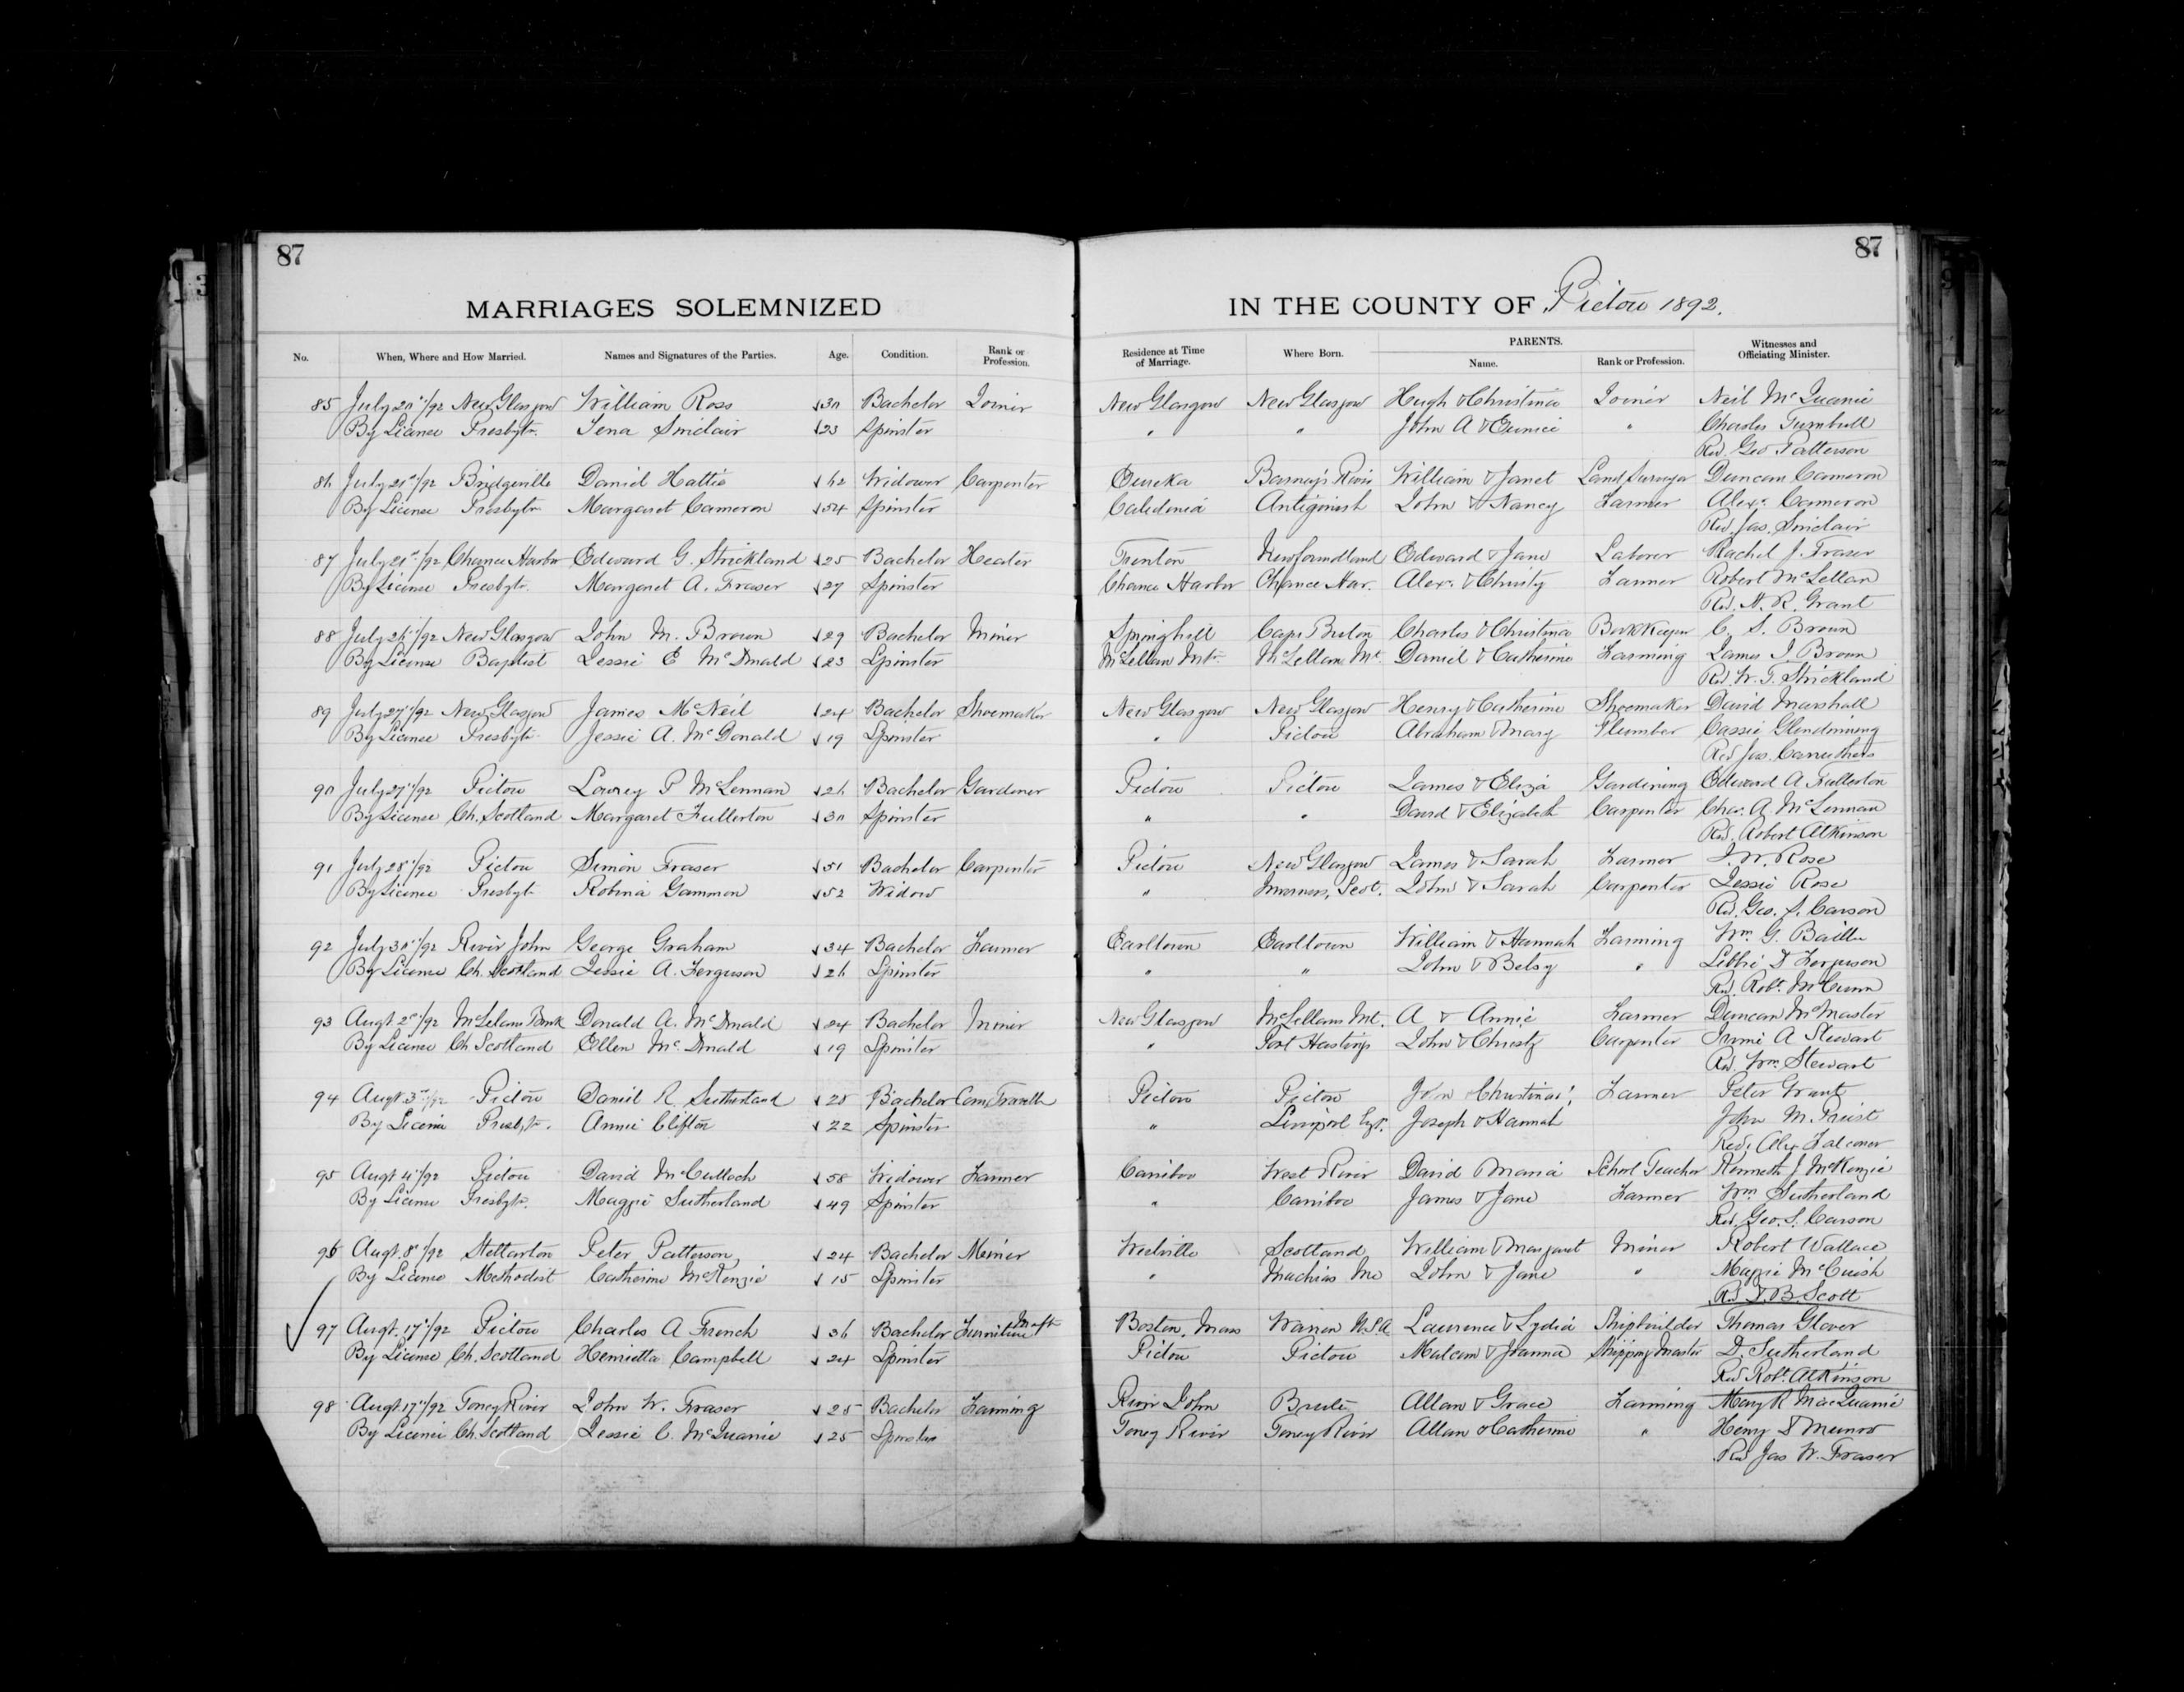 87
87
MARRIAGES SOLEMNIZED IN THE COUNTY OF Pictou 1892.
No. When, Where and How Married. Names and Signatures of the Parties. Age. Condition. Rank or Profession. Residence at Time of Marriage. Where Born. PARENTS. Name. Rank or Profession. Witnesses and Officiating Minister.
85 July 20th/92 New Glasgow William Ross 30 Bachelor Joiner New Glasgow New Glasgow Hugh & Christina Joiner Neil McQuarrie
By License Presbytn. Jena Sinclair 23 Spinster " " John A & Eunice " Charles Turnbull
Rev. Geo Patterson
86 July 21st/92 Bridgeville Daniel Hattie 62 Widower Carpenter Eureka Barney's River William & Janet Land Surveyor Duncan Cameron
By License Presbytn Margaret Cameron 54 Spinster Caledonia Antigonish John & Nancy Farmer Alexr. Cameron
Rev. Jas. Sinclair
87 July 21st/92 Chance Harbor Edward G. Strickland 25 Bachelor Heater Trenton Newfoundland Edward & Jane Laborer Rachel J. Fraser
By License Presbytn. Margaret A. Fraser 27 Spinster Chance Harbor Chance Har. Alexr. & Christy Farmer Robert McLellan
Rev. A. R. Grant
88 July 26th/92 New Glasgow John M. Brown 29 Bachelor Miner Springhill Cape Breton Charles & Christina BookKeeper C. S. Brown
By License Baptist Jessie E McDonald 23 Spinster McLellan Mtn. McLellans Mt. Daniel & Catherine Farming James J. Brown
Rev. W. T. Strickland
89 July 27th/92 New Glasgow James McNeil 24 Bachelor Shoemaker New Glasgow New Glasgow Henry & Catherine Shoemaker David Marshall
By License Presbytn Jessie A. McDonald 19 Spinster " Pictou Abraham & Mary Plumber Cassie Glendinning
Rev Jas. Carruthers
90 July 27th/92 Pictou Lowrey P McLennan 26 Bachelor Gardener Pictou Pictou James & Eliza Gardining Edward A Fullerton
By License Ch. Scotland Margaret Fullerton 30 Spinster " " David & Elizabeth Carpenter Chas. A. McLennan
Rev. Robert Atkinson
91 July 28th/92 Pictou Simon Fraser 51 Bachelor Carpenter Pictou New Glasgow James & Sarah Farmer J. W. Rose
By License Presbyt Robina Gammon 52 Widow " Inverness, Scot. John & Sarah Carpenter Jessie Rose
Rev. Geo. S. Carson
92 July 30th/92 River John George Graham 34 Bachelor Farmer Earltown Earltown William & Hannah Farming Wm. G. Baillie
By License Ch. Scotland Jessie A. Ferguson 26 Spinster " " John & Betsy " Libbie D Ferguson
Rev. Robt. McCunn
93 Augt. 2nd/92 McLelans Brook Donald A. McDonald 24 Bachelor Miner New Glasgow McLellans Mt. A & Annie Farmer Duncan McMaster
By License Ch Scotland Ellen McDonald 19 Spinster " Port Hastings John & Christy Carpenter A Stewart
Rev. Wm. Stewart
94 Augt. 3rd/92 Pictou Daniel R. Sutherland 28 Bachelor Com. Traveller Pictou Pictou John Christina Farmer Peter Grant
By License Presbytn. Annie Clifton 22 Spinster " Liverpool Joseph & Hannah John M. Priest
Rev. Alex Falconer
95 Augt 4th/92 Pictou David McCulloch 58 Widower Farmer Cariboo West River David Maria School Teacher Kenneth J. McKenzie
By License Presbytn. Maggie Sutherland 49 Spinster " Cariboo James & Jane Farmer Wm Sutherland
Rev. Geo. S. Carson
96 Augt. 8th/92 Stellarton Peter Patterson 24 Bachelor Miner Westville Scotland William & Margaret Miner Robert Wallace
By License Methodist Catherine McKenzie 15 Spinster " Machias Me John & Jane " Maggie McCuish
Rev. D. B. Scott
97 Augt. 17th/92 Pictou Charles A French 36 Bachelor Furniture Manft Boston, Mass Warren U.S.A Laurence & Lydia Shipbuilder Thomas Glover
By License Ch. Scotland Henrietta Campbell 24 Spinster Pictou Pictou Malcom & Joanna Shipping Master D. Sutherland
Rev Robt. Atkinson
98 Augt 17th/92 Toney River John W. Fraser 25 Bachelor Farming River John Brule Allan & Grace Farming Mary R MacQuarrie
By License Ch. Scotland Jessie C. McQuarrie 25 Spinster Toney River Toney River Allan & Catherine " Henry D Munro
Rev Jas W. Fraser